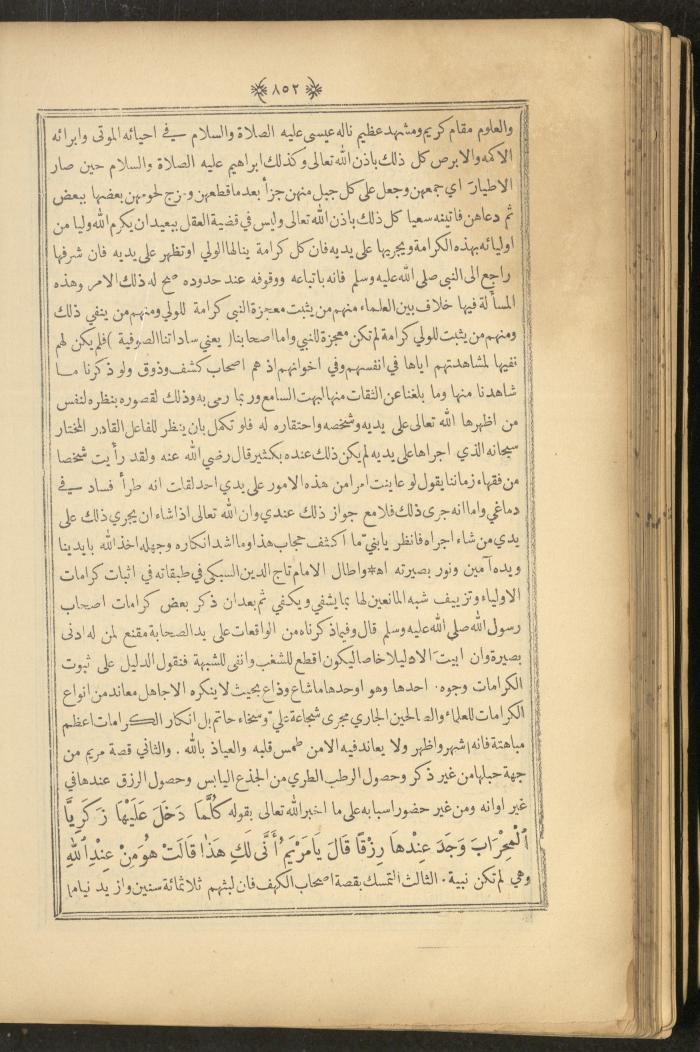 ٨٥٢
والعلوم مقام كريم ومشهد عظيم ناله عيسى عليه الصلاة والسلام في احيائه الموتى وابرائه
الاكمه والابرص كل ذلك باذن الله تعالى وكذلك ابراهيم عليه الصلاة والسلام حين صار
الاطيار اي جمعهن وجعل على كل جبل منهن جزأ بعد ما قطعهن ومزج لحومهن بعضها ببعض
ثم دعاهن فاتينه سعيا كل ذلك باذن الله تعالى وليس في قضية العقل ببعيد ان يكرم الله وليا من
اوليائه بهذه الكرامة ويجريها على يديه فان كل كرامة ينالها الولي او تظهر على يديه فان شرفها
راجع الى النبي صلى الله عليه وسلم فانه باتباعه ووقوفه عند حدوده صح له ذلك الامر وهذه
المسألة فيها خلاف بين العلماء منهم من يثبت معجزة النبى كرامة للولي ومنهم من ينفي ذلك
ومنهم من يثبت للولي كرامة لم تكن معجزة للنبي واما اصحابنا ( يعني ساداتنا الصوفية ) فلم يكن لهم
نفيها لمشاهدتهم اياها في انفسهم وفي اخوانهم اذ هم اصحاب كشف وذوق ولو ذكرنا ما
شاهدنا منها وما بلغنا عن الثقات منها لبهت السامع وربما رمى به وذلك لقصوره بنظره لنفس
من اظهرها الله تعالى على يديه وشخصه واحتقاره له فلو تكمل بان ينظر للفاعل القادر المختار
سبحانه الذي اجراها على يديه لم يكن ذلك عنده بكثير قال رضي الله عنه ولقد رأيت شخصا
من فقهاء زماننا يقول لو عاينت امرا من هذه الامور على يدي احد لقلت انه طرأ فساد في
دماغي واما انه جرى ذلك فلا مع جواز ذلك عندي وان الله تعالى اذا شاء ان يجري ذلك على
يدي من شاء اجراه فانظر يابني ما اكثف حجاب هذا وما اشد انكاره وجهله اخذ الله بايدينا
ويده آمين ونور بصيرته اه * واطال الامام تاج الدين السبكي في طبقاته في اثبات كرامات
الاولياء وتزييف شبه المانعين لها بما يشفي ويكفي ثم بعد ان ذكر بعض كرامات اصحاب
رسول الله صلى الله عليه وسلم قال وفيما ذكرناه من الواقعات على يد الصحابة مقنع لمن له ادنى
بصيرة وان ابيت الا دليلا خاصا ليكون اقطع للشغب وانفى للشبهة فنقول الدليل على ثبوت
الكرامات وجوه . احدها وهو اوحدها ما شاع وذاع بحيث لا ينكره الا جاهل معاند من انواع
الكرامات للعلماء والصالحين الجاري مجرى شجاعة علي وسخاء حاتم بل انكار الكرامات اعظم
مباهتة فانه اشهر واظهر ولا يعاند فيه الا من طمس قلبه والعياذ بالله . والثاني قصة مريم من
جهة حبلها من غير ذكر وحصول الرطب الطري من الجذع اليابس وحصول الرزق عندها في
غير اوانه ومن غير حضور اسبابه على ما اخبر الله تعالى بقوله كُلَّمَا دَخَلَ عَلَيْهَا زَكَرِيَّا
ٱلْمِحْرَابَ وَجَدَ عِنْدَهَا رِزْقًا قَالَ يَامَرْيَمُ أَنَّى لَكِ هَذَا قَالَتْ هُوَ مِنْ عِنْدِ ٱللهِ
وهي لم تكن نبية . الثالث التمسك بقصة اصحاب الكهف فان لبثهم ثلاثمائة سنين وازيد نياما